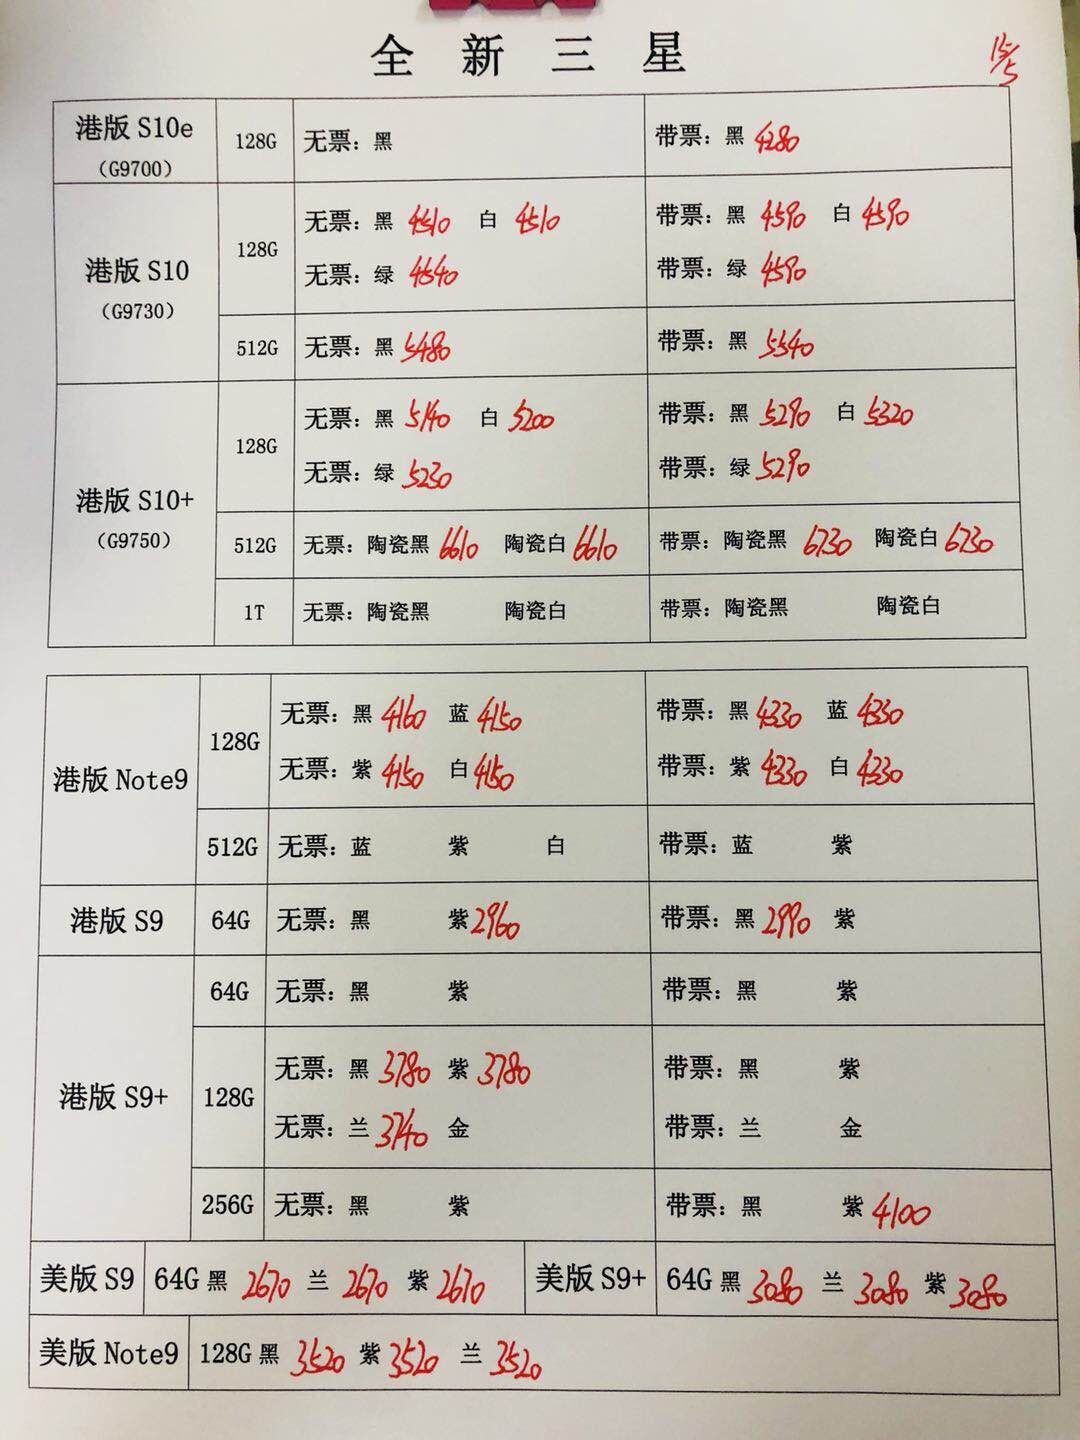 全新三星
15/5
港版 S10e
(G9700)
128G
无票：黑
带票：黑 4280
港版 S10
(G9730)
128G
无票：黑 4510 白 4510
无票：绿 4540
带票：黑 4590 白 4590
带票：绿 4590
512G
无票：黑 5480
带票：黑 5540
港版 S10+
(G9750)
128G
无票：黑 5140 白 5200
无票：绿 5230
带票：黑 5290 白 5320
带票：绿 5290
512G
无票：陶瓷黑 6610 陶瓷白 6610
带票：陶瓷黑 6730 陶瓷白 6730
1T
无票：陶瓷黑 陶瓷白
带票：陶瓷黑 陶瓷白
港版 Note9
128G
无票：黑 4160 蓝 4150
无票：紫 4150 白 4150
带票：黑 4330 蓝 4330
带票：紫 4330 白 4330
512G
无票：蓝 紫 白
带票：蓝 紫
港版 S9
64G
无票：黑 紫 2960
带票：黑 2990 紫
港版 S9+
64G
无票：黑 紫
带票：黑 紫
128G
无票：黑 3780 紫 3780
无票：兰 3740 金
带票：黑 紫
带票：兰 金
256G
无票：黑 紫
带票：黑 紫 4100
美版 S9
64G 黑 2670 兰 2670 紫 2670
美版 S9+
64G 黑 3080 兰 3080 紫 3080
美版 Note9
128G 黑 3520 紫 3520 兰 3520